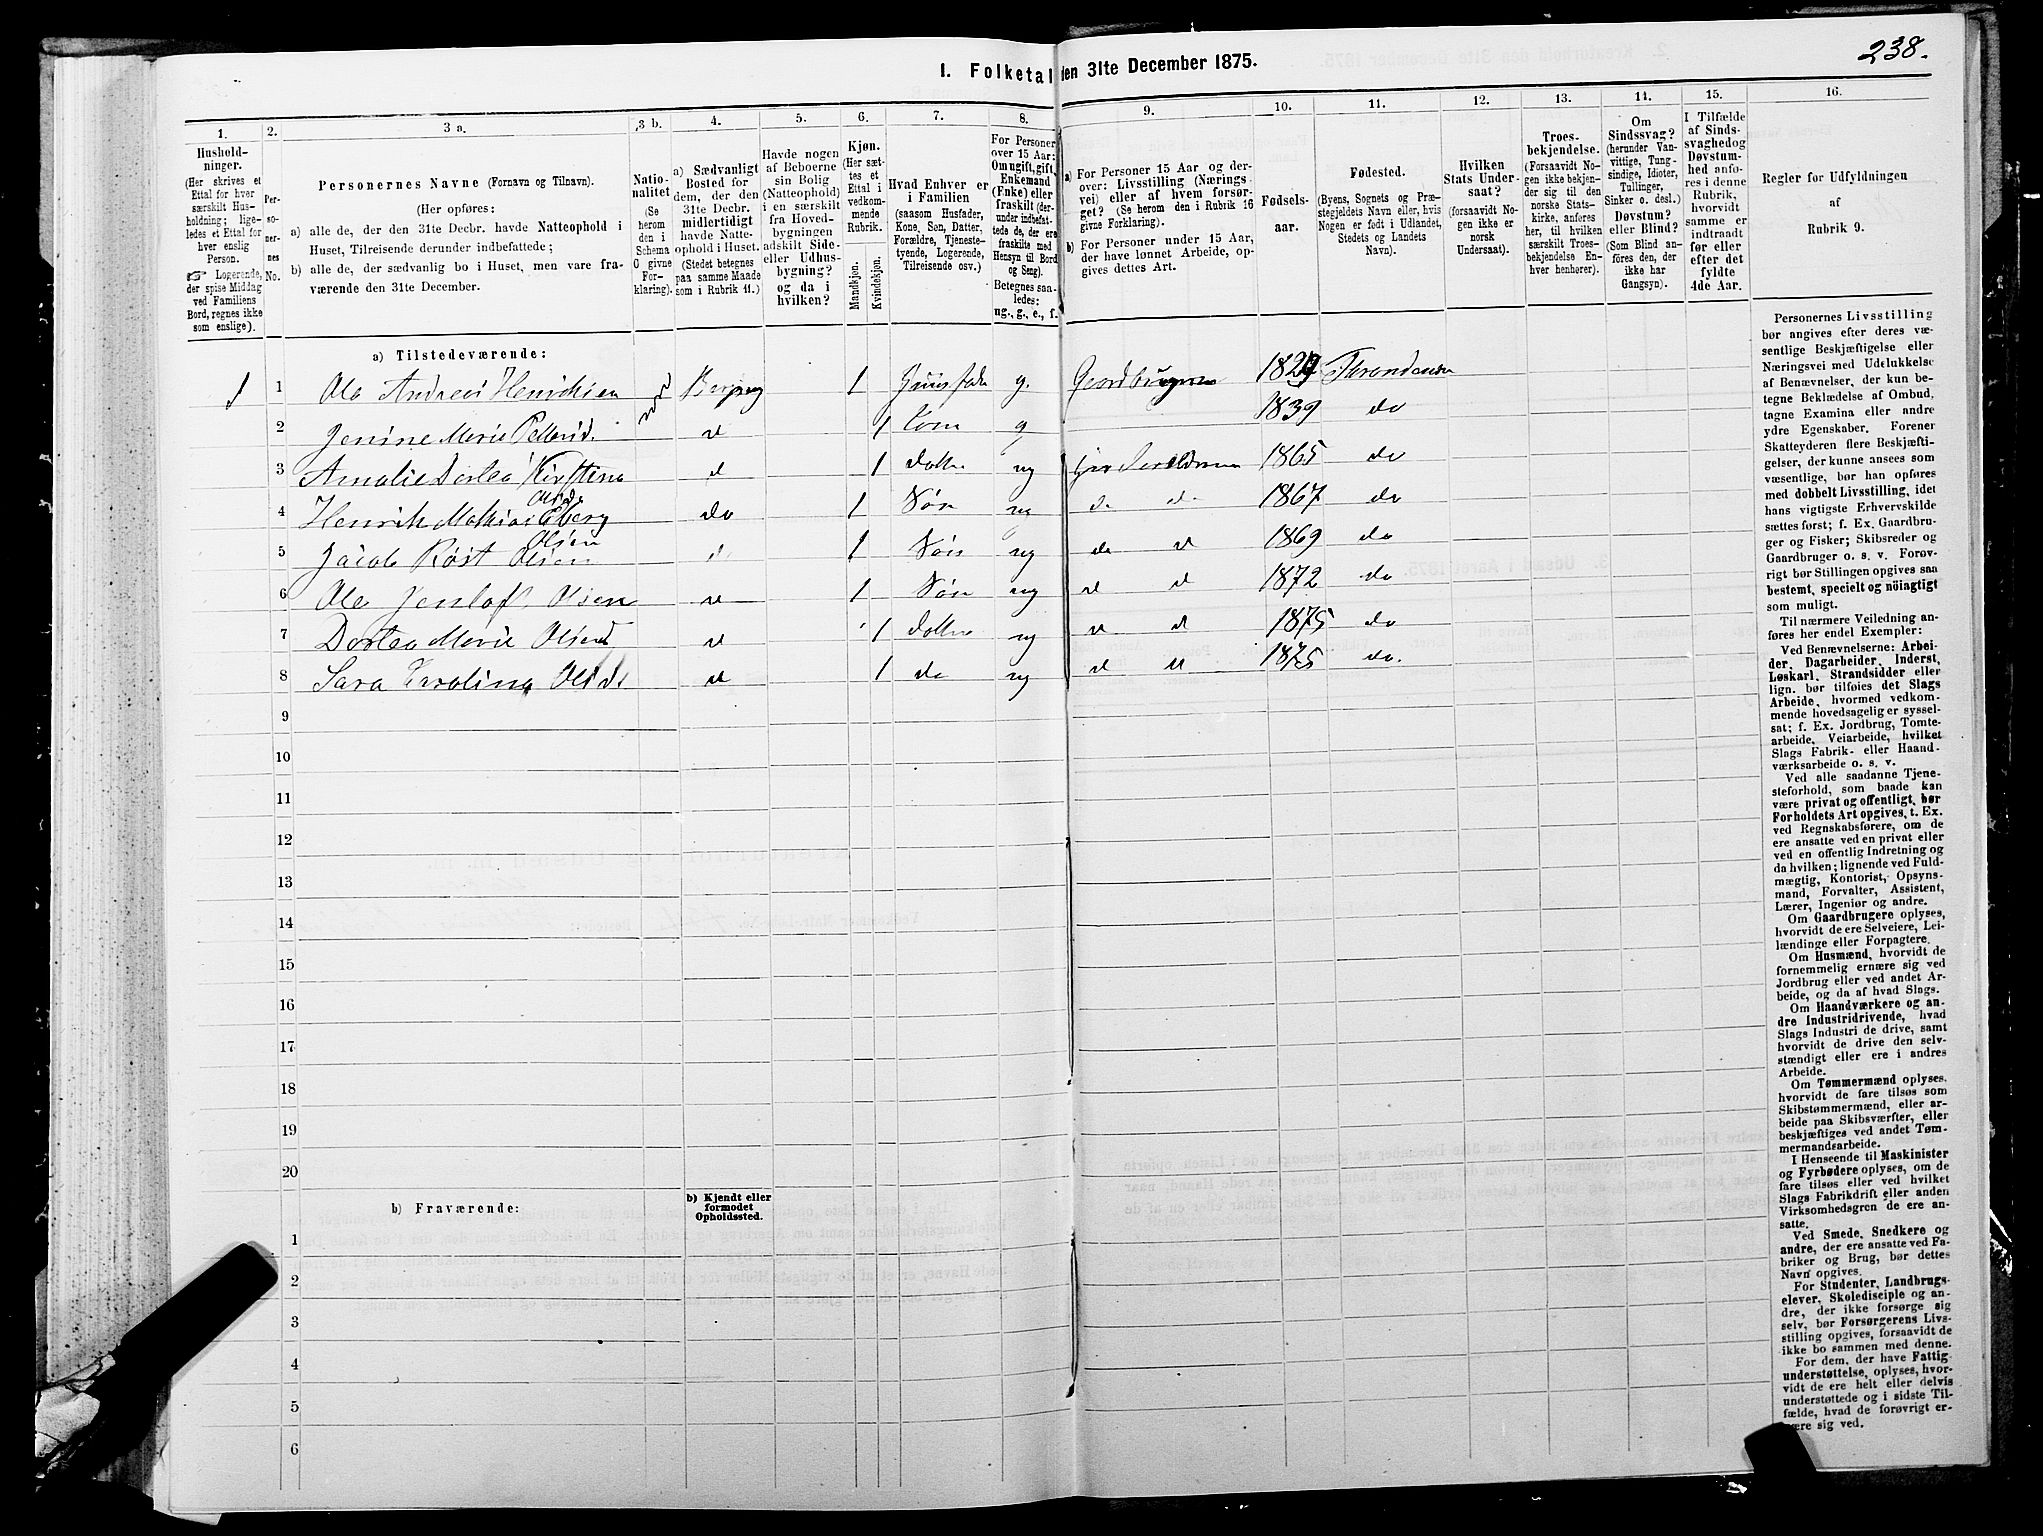 238.
I. Folketal den 31te December 1875.
1.
Hushold-
ninger.
(Her skrives et
Ettal for hver
særskilt Hus-
holdning; lige-
ledes et Ettal for
hver enslig
Person.
☞ Logerende,
der spise Middag
ved Familiens
Bord, regnes ikke
som enslige).
2.
Per-
so-
ner-
nes
No.
3 a.
Personernes Navne (Fornavn og Tilnavn).
(Her opføres:
a) alle de, der den 31te Decbr. havde Natteophold i
Huset, Tilreisende derunder indbefattede;
b) alle de, der sædvanlig bo i Huset, men vare fra-
værende den 31te December.
3 b.
Natio-
nalitet
(Se
herom
den i
Schema
O givne
For-
klaring).
4.
a) Sædvanligt
Bosted for
dem, der den
31te Decbr.
midlertidigt
havde Natte-
ophold i Huset.
(Stedet betegnes
paa samme Maade
som i Rubrik 11.)
5.
Havde nogen
af Beboerne
sin Bolig
(Natteophold)
i en særskilt
fra Hoved-
bygningen
adskilt Side-
eller Udhus-
bygning?
og da i
hvilken?
6.
Kjøn.
(Her sæt-
tes et
Ettal i
vedkom-
mende
Rubrik.
Mandkjøn.
Kvindekjøn.
7.
Hvad Enhver er
i Familien
(saasom Husfader,
Kone, Søn, Datter,
Forældre, Tjeneste-
tyende, Logerende,
Tilreisende osv.)
8.
For Personer
over 15 Aar:
Om ugift, gift,
Enkemand
(Enke) eller
fraskilt (der-
under indbefat-
tede de, der ere
fraskilte med
Hensyn til Bord
og Seng).
Betegnes saa-
ledes:
ug., g., e., f.
9.
a) For Personer 15 Aar og der-
over: Livsstilling (Nærings-
vei) eller af hvem forsør-
get? (Se herom den i Rubrik 16
givne Forklaring).
b) For Personer under 15 Aar,
der have lønnet Arbeide, op-
gives dettes Art.
10.
Fødsels-
aar.
11.
Fødested.
(Byens, Sognets og Præ-
stegjeldets Navn eller, hvis
Nogen er født i Udlandet,
Stedets og Landets
Navn).
12.
Hvilken
Stats Under-
saat?
(forsaavidt No-
gen ikke er
norsk
Undersaat).
13.
Troes-
bekjendelse.
(Forsaavidt No-
gen ikke bekjen-
der sig til den
norske Stats-
kirke, anføres
her, til hvilken
særskilt Troes-
bekjendelse En-
hver henhører).
14.
Om
Sindssvag?
(herunder Van-
vittige, Tung-
sindige, Idioter,
Tullinger,
Sinker o. desl.)
Døvstum?
eller Blind?
(Som Blind an-
føres den, der
ikke har
Gangsyn).
15.
I Tilfælde
af Sinds-
svaghed og
Døvstum-
hed anfø-
res i denne
Rubrik,
hvorvidt
samme er
indtraadt
før eller
efter det
fyldte
4de Aar.
16.
Regler for Udfyldningen
af
Rubrik 9.
a) Tilstedeværende:
1 1 Ole Andreas Henriksen 1 g. Gaardbruger 1829
2 Jenine Marie Pettersd. d 1 Kone g 1839 do
3 Amalie Dortea Kirstina Olsd. d 1 ug 1865 do
4 Henrik Mathias Olsen do 1 Søn ug d d 1867 do
5 Jacob Røst Olsen d 1 Søn ug do d 1869 do
6 Ole Jentoft Olsen d 1 Søn ug d d 1872 do
7 Dortea Marie Olsend d 1 ug d d 1875 do
8 Sara Karolina Olsd. d 1 do ug d 1875 do.
9
10
11
12
13
14
15
16
17
18
19
20
b) Fraværende:
b) Kjendt eller
formodet
Opholdssted.
1
2
3
4
5
6
Personernes Livsstilling
bør angives efter deres væ-
sentlige Beskjæftigelse eller
Næringsvei med Udelukkelse
af Benævnelser, der kun be-
tegne Beklædelse af Ombud,
tagne Examina eller andre
ydre Egenskaber. Forener
Skatteyderen flere Beskjæfti-
gelser, der kunne ansees som
væsentlige, bør han opføres
med dobbelt Livsstilling, idet
hans vigtigste Erhvervskilde
sættes først; f. Ex. Gaardbru-
ger og Fisker; Skibsreder og
Gaardbruger o. s. v. Forøv-
rigt bør Stillingen opgives saa
bestemt, specielt og nøiagtigt
som muligt.
Til nærmere Veiledning an-
føres her endel Exempler:
Ved Benævnelserne: Arbei-
der, Dagarbeider, Inderst,
Løskarl, Strandsidder eller
lign. bør tilføies det Slags
Arbeide, hvormed vedkom-
mende hovedsagelig er syssel-
sat; f. Ex. Jordbrug, Tomte-
arbeide, Veiarbeide, hvilket
Slags Fabrik- eller Haand-
værksarbeide o. s. v.
Ved alle saadanne Tjene-
steforhold, som baade kan
være privat og offentligt, bør
Forholdets Art opgives, t. Ex.
ved Regnskabsførere, om de
ere ansatte ved en privat eller
ved en offentlig Indretning og
da hvilken; lignende ved Fuld-
mægtig, Kontorist, Opsyns-
mand, Forvalter, Assistent,
Lærer, Ingeniør og andre.
Om Gaardbrugere oplyses,
hvorvidt de ere Selveiere, Lei-
lændinge eller Forpagtere.
Om Husmænd, hvorvidt de
fornemmelig ernære sig ved
Jordbrug eller ved andet Ar-
beide, og da af hvad Slags.
Om Haandværkere og an-
dre Industridrivende, hvad
Slags Industri de drive, samt
hvorvidt de drive den selv-
stændigt eller ere i andres
Arbeide.
Om Tømmermænd oplyses,
hvorvidt de fare tilsøs som
Skibstømmermænd, eller ar-
beide paa Skibsværfter, eller
beskjæftiges ved andet Tøm-
mermandsarbeide.
I Henseende til Maskinister
og Fyrbødere oplyses, om de
fare tilsøs eller ved hvilket
Slags Fabrikdrift eller anden
Virksomhedsgren de ere an-
satte.
Ved Smede, Snedkere og
andre, der ere ansatte ved Fa-
briker og Brug, bør dettes
Navn opgives.
For Studenter, Landbrugs-
elever, Skoledisciple og an-
dre, der ikke forsørge sig
selv, bør Forsørgerens Livs-
stilling opgives, forsaavidt de
ikke bo sammen med denne.
For dem, der have Fattig-
understøttelse, oplyses, hvor-
vidt de ere helt eller delvis
understøttede og i sidste Til-
fælde, hvad de forøvrigt er-
nære sig ved.